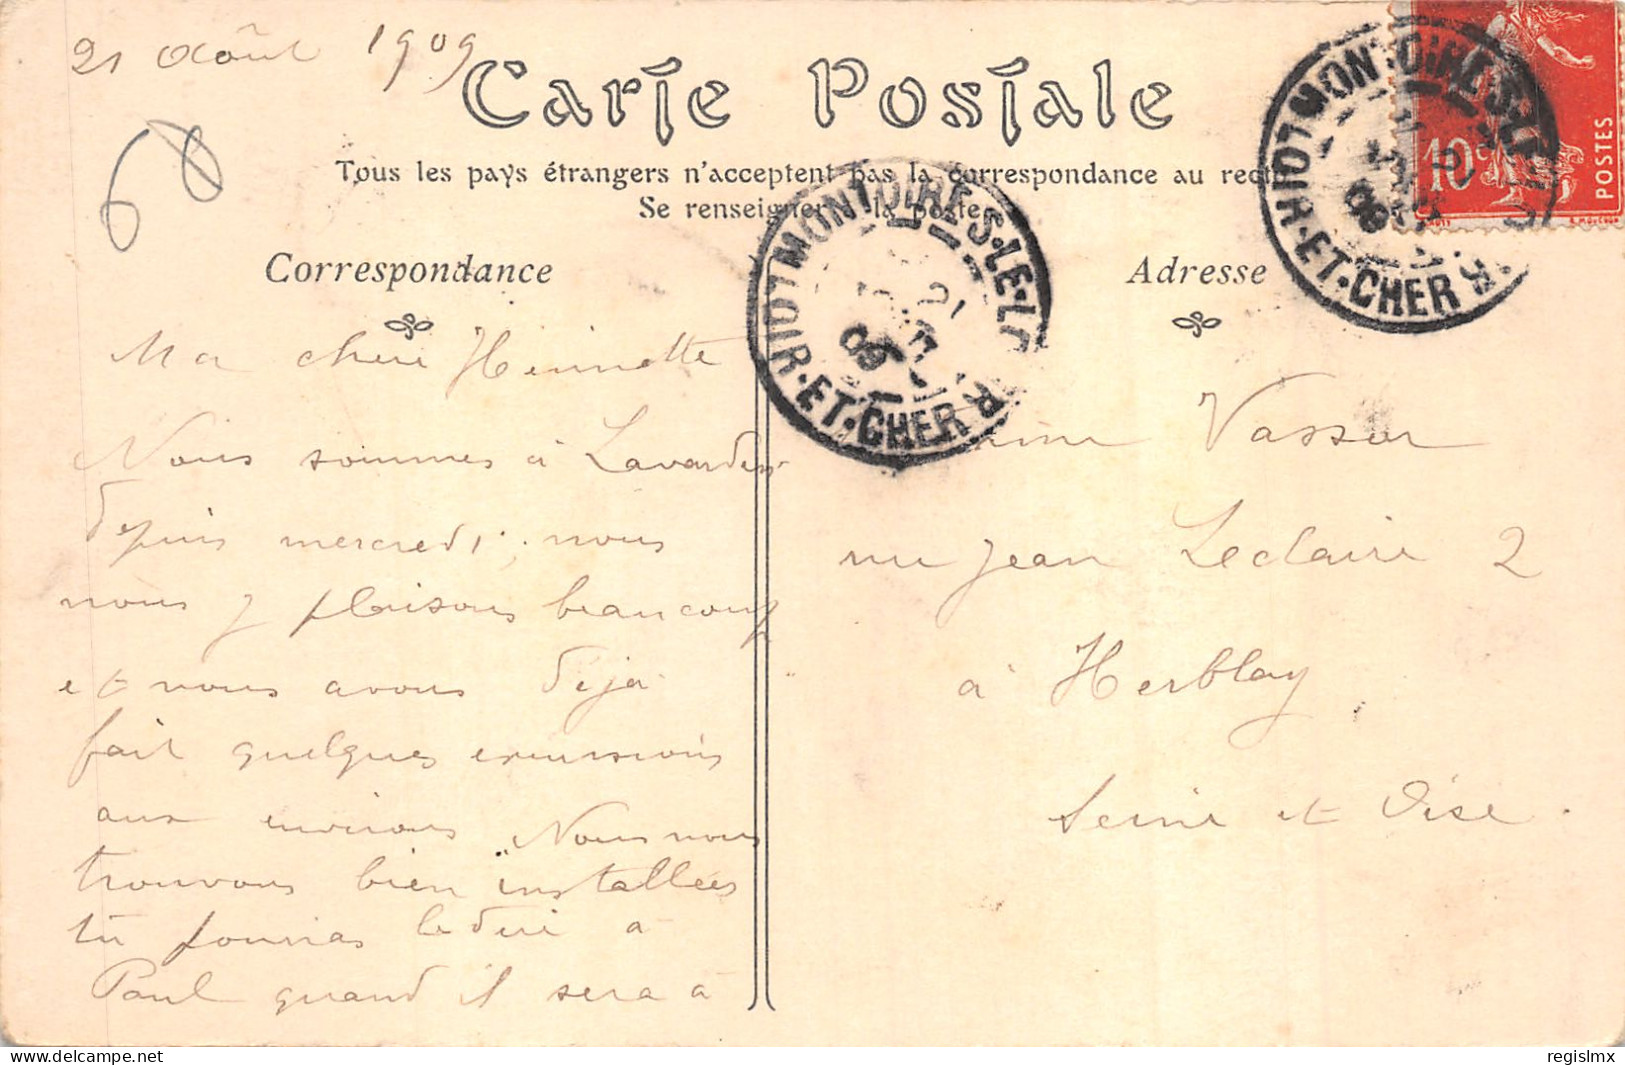 21 Août 1909
68
Carte Postale
Tous les pays étrangers n'acceptent pas la correspondance au recto
Se renseigner à la poste
Correspondance
Adresse
MONTOIRE-S-LE-LOIR
LOIR-ET-CHER
09
MONTOIRE-S-LE-LOIR
LOIR-ET-CHER
09
10c
POSTES
Ma chère Henriette
Nous sommes à Lavardin
depuis mercredi; nous
nous y plaisons beaucoup
et nous avons déjà
fait quelques excursions
aux environs Nous nous
trouvons bien installées
tu pourras le dire à
Paul quand il sera à
Vassor
rue Jean Leclaire 2
à Herblay
Seine et Oise.
regislmx
Delcampe.net